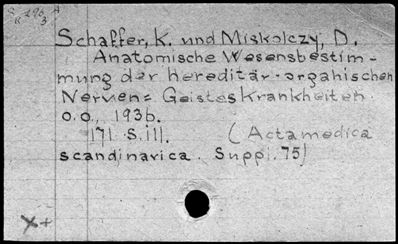 Schaffer, K. und Miskolczy, D.
Anatomische Wesensbestim-
mung der hereditär-organischen
Nerven= Geisteskrankheiten.
o.O., 1936.
171 S. ill. (Acta medica
scandinavica. Suppl. 75)